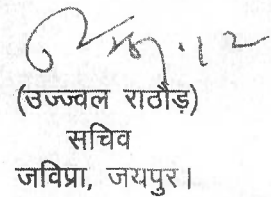 (उज्ज्वल राठौड़)
सचिव
जविप्रा, जयपुर।